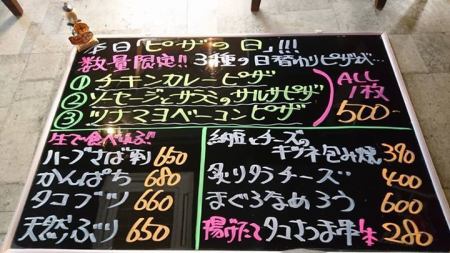 本日「ピザの日」!!!
数量限定!! 3種の日替わりピザ式…
① チキンカレーピザ
② ソーセージとサラミのサルサピザ
③ ツナマヨベーコンピザ
ALL
1枚
500-
生で食べれるぶ
ハーブマば刺 650
かんぱち 680
タコブツ 660
天然ぶり 650
納豆とチーズの
キツネ包み焼 390
炙りタラチーズ 400
まぐろなめろう 600
揚げたてタコさつま串 1本 280